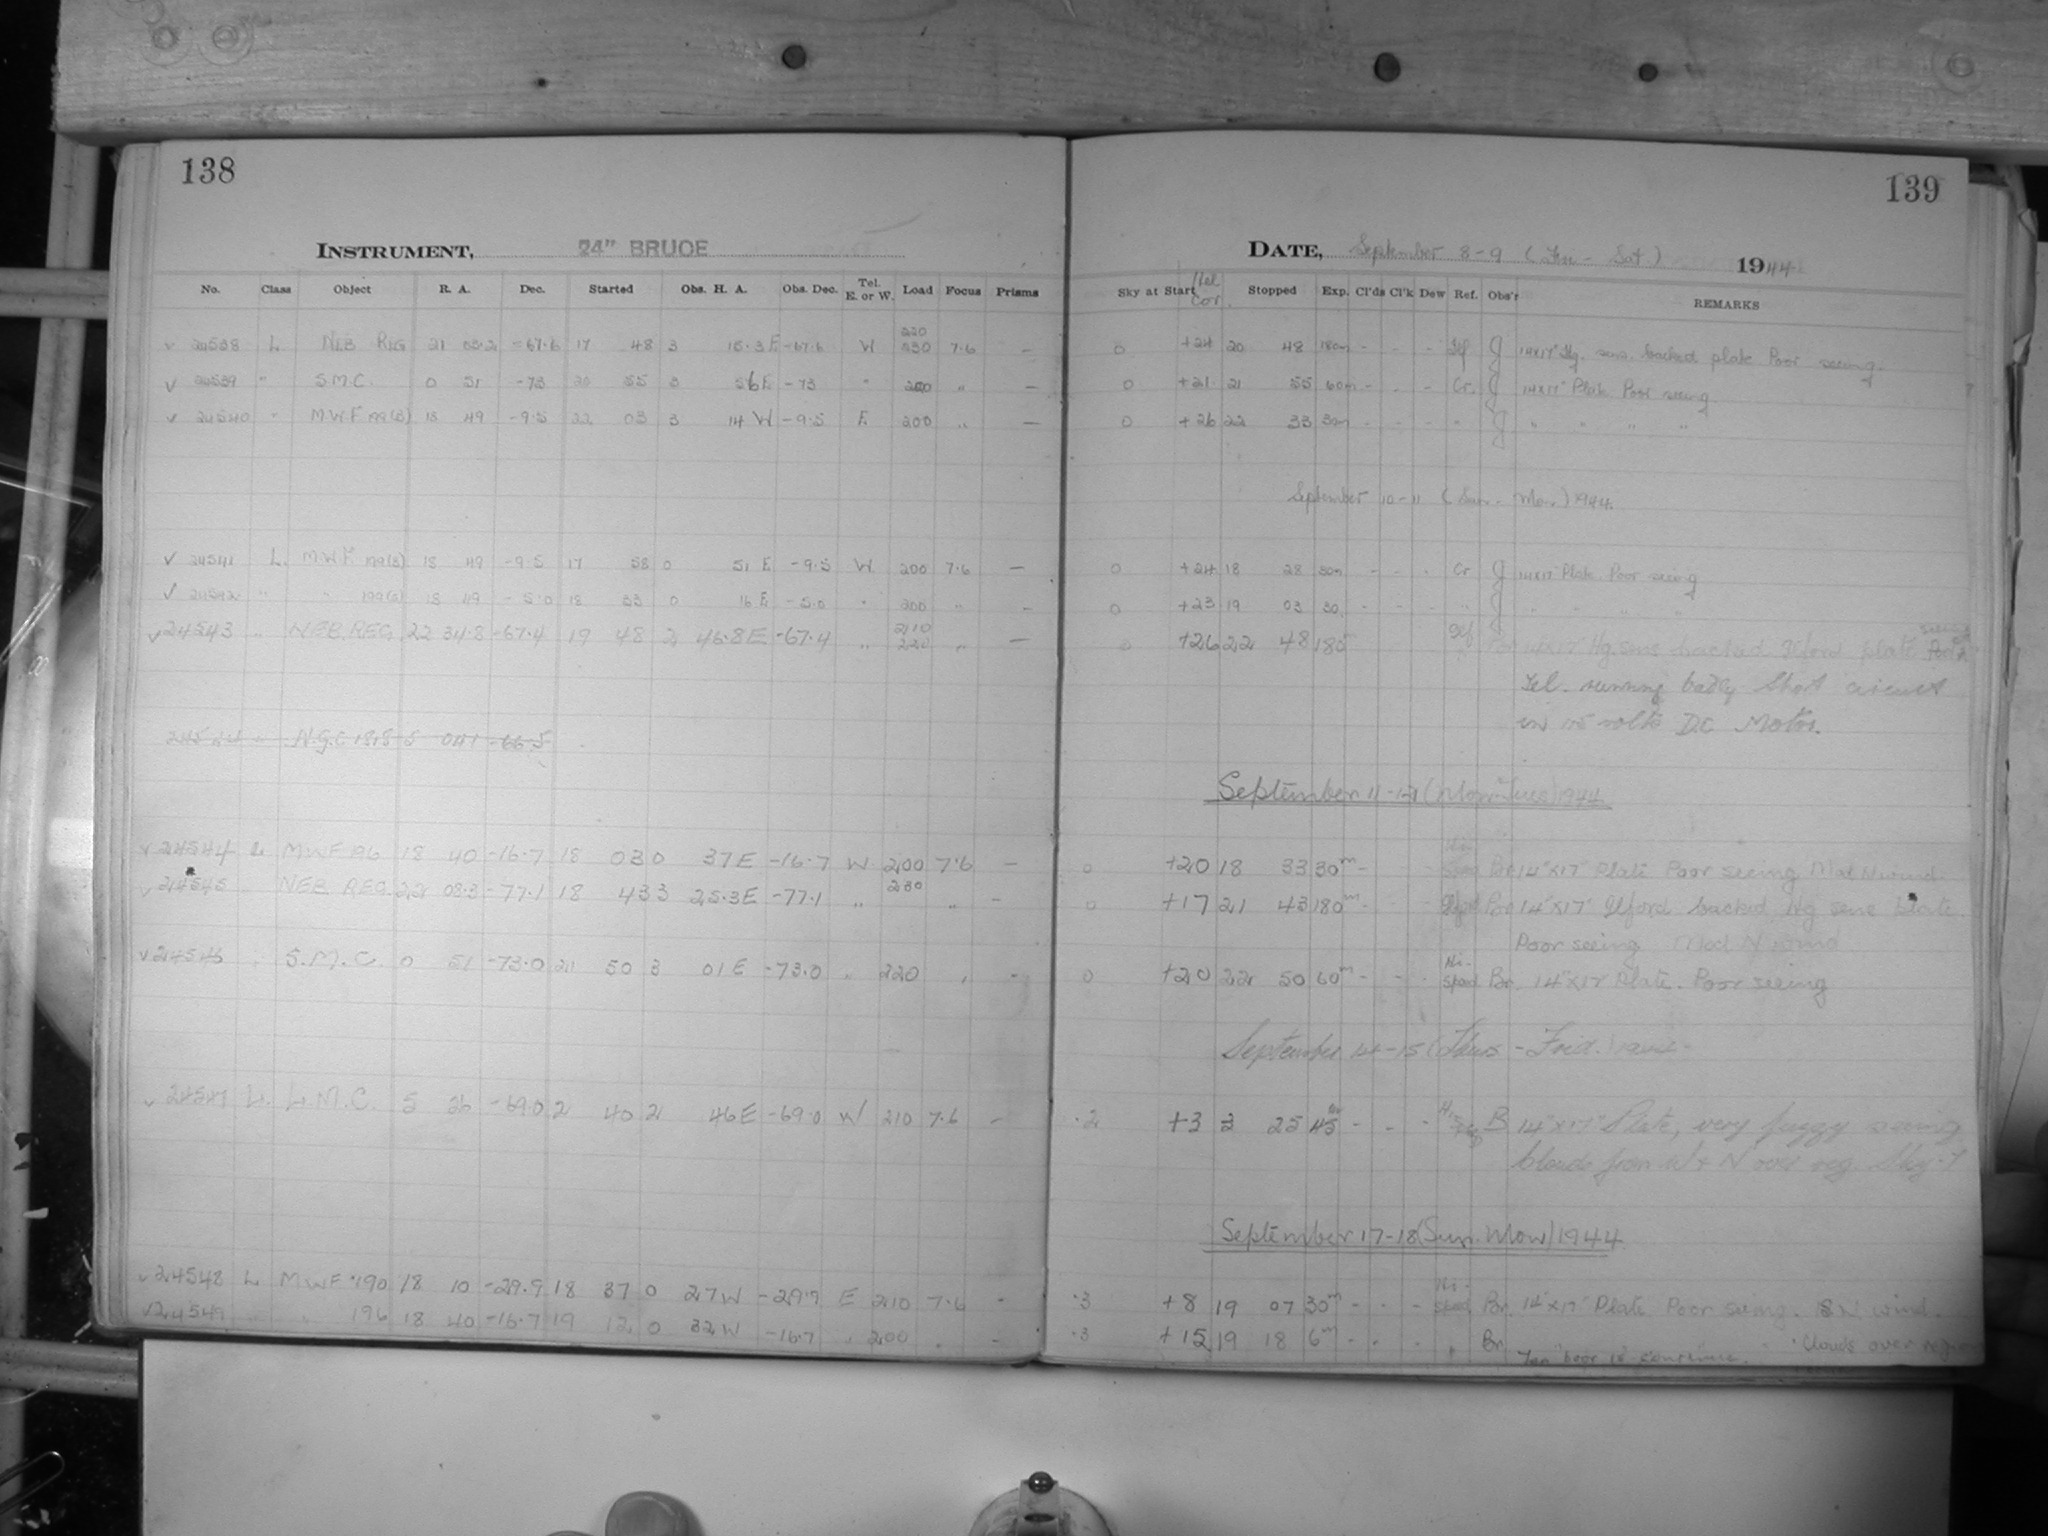 138
INSTRUMENT, 24" BRUCE
No. Class Object R. A. Dec. Started Obs. H. A. Obs. Dec. Tel. E. or W. Load Focus Prisms
✓ 24538 L. NEB REG 21 03.2 -67.6 17 48 3 15.3 E -67.6 W 220 230 7.6 —
✓ 24539 " S.M.C. 0 51 -73 20 55 3 56 E -73 " 200 " —
✓ 24540 " M.W.F 199(B) 18 49 -9.5 22 03 3 14 W -9.5 E 200 " —
✓ 24541 L. M.W.F 199(B) 18 49 -9.5 17 58 0 51 E -9.5 W 200 7.6 —
✓ 24542 " " 199(a) 18 49 -5.0 18 33 0 16 E -5.0 " 200 " —
✓ 24543 " NEB. REG. 22 34.8 -67.4 19 48 2 46.8 E -67.4 " 210 220 " —
N.G.C 1818 5 04.1 -66.5
✓ 24544 L MWF 196 18 40 -16.7 18 03 0 37 E -16.7 W 200 7.6 —
✓ 24545 NEB REG. 22 08.3 -77.1 18 43 3 25.3 E -77.1 " 230 " —
✓ 24546 " S.M.C. 0 51 -73.0 21 50 3 01 E -73.0 " 220 " —
✓ 24547 L. L.M.C. 5 26 -69.0 2 40 2 46 E -69.0 W 210 7.6 —
✓ 24548 L MWF 190 18 10 -29.9 18 37 0 27 W -29.9 E 210 7.6 -
✓ 24549 " " 196 18 40 -16.7 19 12 0 32 W -16.7 " 200 " -
139
DATE, September 8-9 (Fri - Sat) 1944
Sky at Start Tel Cor. Stopped Exp. Cl'ds Cl'k Dew Ref. Obs'r REMARKS
0 +24 20 48 180m - - - Ilf J 14x17" Hg. sens. backed plate Poor seeing.
0 +21 21 55 60m - - - Cr. J 14x17" Plate Poor seeing
0 +26 22 33 30m - - - " J " " " "
September 10-11 (Sun - Mon.) 1944.
0 +24 18 28 30m - - - Cr J 14x17" Plate. Poor seeing
0 +23 19 03 30 - - - " J " " " "
0 +26 22 48 185 Ilf Br 14x17" Hg. sens backed Ilford plate Poor seeing
Tel. running badly Short circuit
in 115 volts D.C Motor.
September 11-12 (Mon-Tues) 1944
0 +20 18 33 30m - - Hi-Speed Br 14"x17" Plate Poor seeing Mod N wind.
0 +17 21 43 180m - - Ilford Br 14"x17" Ilford backed Hg sens plate.
Poor seeing Mod N wind
0 +20 22 50 60m - - - Hi-Speed Br. 14"x17" Plate. Poor seeing
September 14-15 (Thurs - Frid.) 1944
.2 +3 3 25 45m - - - Hi-Speed B 14"x17" Plate, very fuzzy seeing
Clouds from W + N over reg. Sky .7
September 17-18 (Sun. Mon) 1944
.3 +8 19 07 30m - - - Hi-Speed Br. 14"x17" Plate Poor seeing. N wind.
.3 +15 19 18 6m - - - " Br. Clouds over region
Too poor to continue.